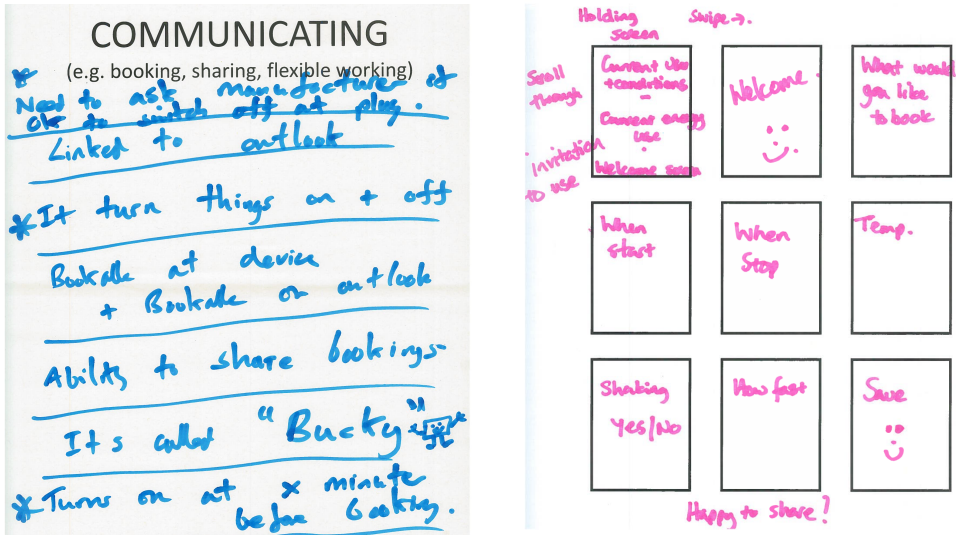 COMMUNICATING
(e.g. booking, sharing, flexible working)
* Need to ask manufacturer if
OK to switch off at plug.
Linked to outlook
* It turn things on + off
Bookable at device
+ Bookable on outlook
Ability to share bookings
It's called "Bucky"
* Turns on at x minute
before booking.
Holding
screen
Swipe →.
Scroll
through
Invitation
to use
Current use
+ conditions
Current energy
use
Welcome screen
Welcome.
What would
you like
to book
When
start
When
Stop
Temp.
Shaking
Yes/No
How fast
Save
Happy to share?